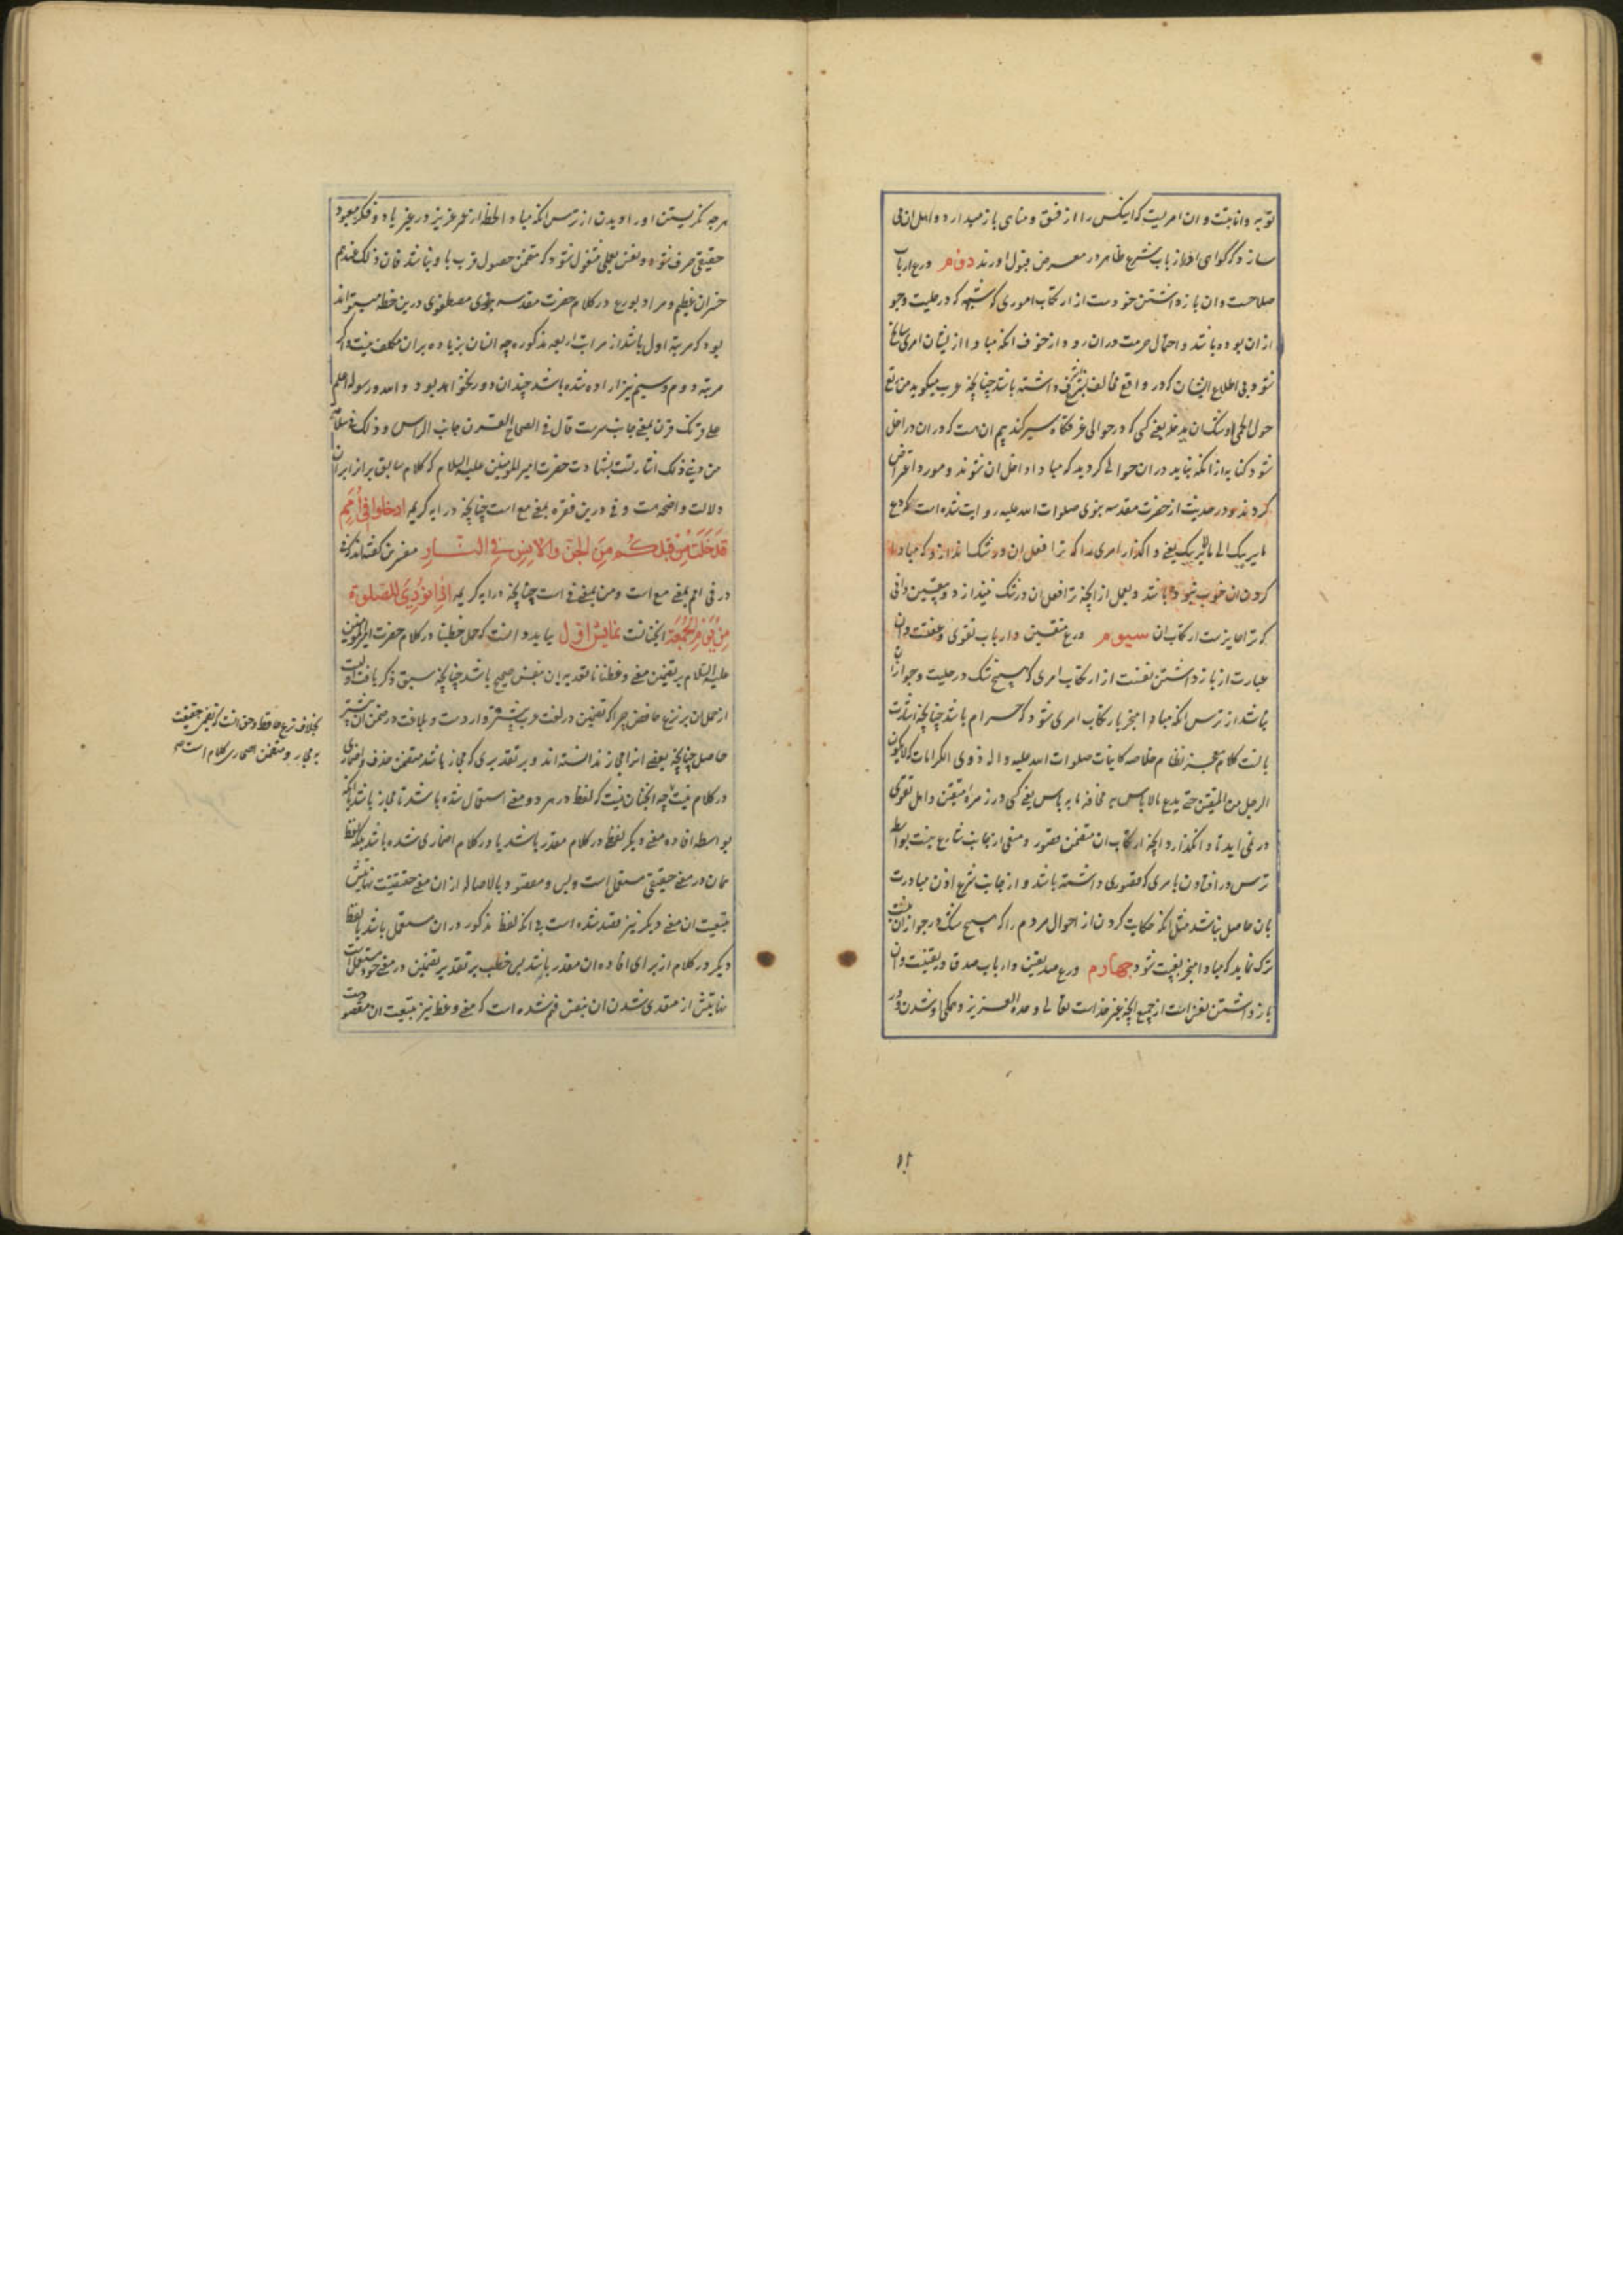 توبه و انابتست و ان امریست که اینکس را از فسق و مناهی باز میدارد و اهل ان می
سازد که گواهی او از باب شرع ظاهر در معرض قبول اورند دوم ورع ارباب
صلاحست و ان بازداشتن خودست از ارتکاب اموری که شبهه که در حلیت و جو
از ان بوده باشد و احتمال حرمت دران رود از خوف انکه مبادا از ایشان امری سانح
شود بی اطلاع ایشان که در واقع مخالف شرع داشته باشد چنانچه عرب میگوید من یرتع
حول الحمی اوشک ان یدخله یعنی کسی که در حوالی غرقگاه سیر کند بیم ان هست که در ان داخل
شود کنایه از انکه نباید در ان حوالی گردید که مبادا داخل ان شوند و مورد اعتراض
گردند و در حدیث از حضرت مقدسه نبوی صلوات الله علیه روایت شده است که دع
ما یریبک الی ما لا یریبک یعنی واگذار امری را که ترا فعل ان در شک اندازد که مبادا
کردن ان خوب نبوده باشد و بعمل ار انچه ترا فعل ان در شک نیندازد و بیقین دانی
که ترا جایزست ارتکاب ان سیوم ورع متقین و ارباب تقوی و عفتست و ان
عبارت از بازداشتن نفسست از ارتکاب امری که هیچ شک در حلیت و جواز ان
نباشد از ترس انکه مبادا منجر بارتکاب امری شود که حرام باشد چنانچه اشارت
بانست کلام معجز نظام خلاصه کاینات صلوات الله علیه و اله ذوی الکرامات که لا یکون
الرجل من المتقین حتی یدع ما لا باس به مخافة ما به باس یعنی کسی در زمره متقین و اهل تقوی
در نمی اید تا وانگذارد انچه ارتکاب ان متضمن قصور و منعی از جانب شارع نیست بواسطه
ترس در افتادن بامری که قصوری داشته باشد و از جانب شرع اذن مبادرت
بان حاصل نباشد مثل انکه حکایت کردن از احوال مردم را که هیچ شک در جواز ان نیست
ترک نماید که مبادا منجر بغیبت شود چهارم ورع صدیقین و ارباب صدق و یقینست و ان
بازداشتن نفس است از جمیع انچه غیر خداست تعالی و حده العزیز و همگی او شدن و در
هرچه نگریستن او را دیدن از ترس انکه مبادا لحظه از عمر عزیز در غیر یاد و فکر معبود
حقیقی صرف شود و نفس بعملی مشغول شود که متضمن حصول قرب باو نباشد فان ذلک عندهم
خسران عظیم و مراد بورع در کلام حضرت مقدسه نبوی مصطفوی درین خطبه میتواند
بود که مرتبه اول باشد از مراتب اربعه مذکوره چه انسان بزیاده بران مکلف نیست و اگر
مرتبه دوم و سیم نیز اراده شده باشد چندان دور نخواهد بود و الله و رسوله اعلم
علی قرنک قرن بمعنی جانب سرست قال فی الصحاح القرن جانب الراس و ذلک فی سلامة
من دینی ذلک اشارتست بشهادت حضرت امیر المومنین علیه السلام که کلام سابق بر ان
دلالت واضحه دارد و فی درین فقره بمعنی مع است چنانچه در ایه کریمه ادخلوا فی امم
قد خلت من قبلکم من الجن و الانس فی النار مفسرین گفته اند که فی
در فی امم بمعنی مع است و من بمعنی فی است چنانچه در ایه کریمه اذا نودی للصلوة
من یوم الجمعة انچنانست نمایش اول بباید دانست که حمل خطبنا در کلام حضرت امیر المومنین
علیه السلام بر تضمین معنی وعظنا تا تعدیه بان بنفس صحیح باشد چنانچه سبق ذکر یافت اولیست
از حمل ان بر نزع خافض چرا که تضمین در لغت عرب بیشتر وارد ست و بلاغت در ضمن ان بیشتر
حاصل چنانچه بعضی انرا مجاز ندانسته اند و بر تقدیری که مجاز باشد متضمن حذف و اضماری
در کلام نیست چه انچنان نیست که لفظ در هر دو معنی استعمال شده باشد تا مجاز باشد یا انکه
بواسطه افاده معنی دیگر لفظ در کلام مقدر باشد یا در کلام اضماری شده باشد بلکه لفظ
همان در معنی حقیقی مستعمل است و بس و مقصود بالاصاله از ان معنی حقیقیست نهایتش
بتبعیت ان معنی دیگر نیز قصد شده است بی انکه لفظ مذکور دران مستعمل باشد یا لفظ
دیگر در کلام از برای افاده ان مقدر باشد پس خطب بر تقدیر تضمین در معنی خود مستعملست
نهایتش از متعدی شدن ان بنفس فهم شده است که معنی وعظ نیز بتبعیت ان مقصودست
بخلاف نزع خافض
و متضمن اضماری در کلام است